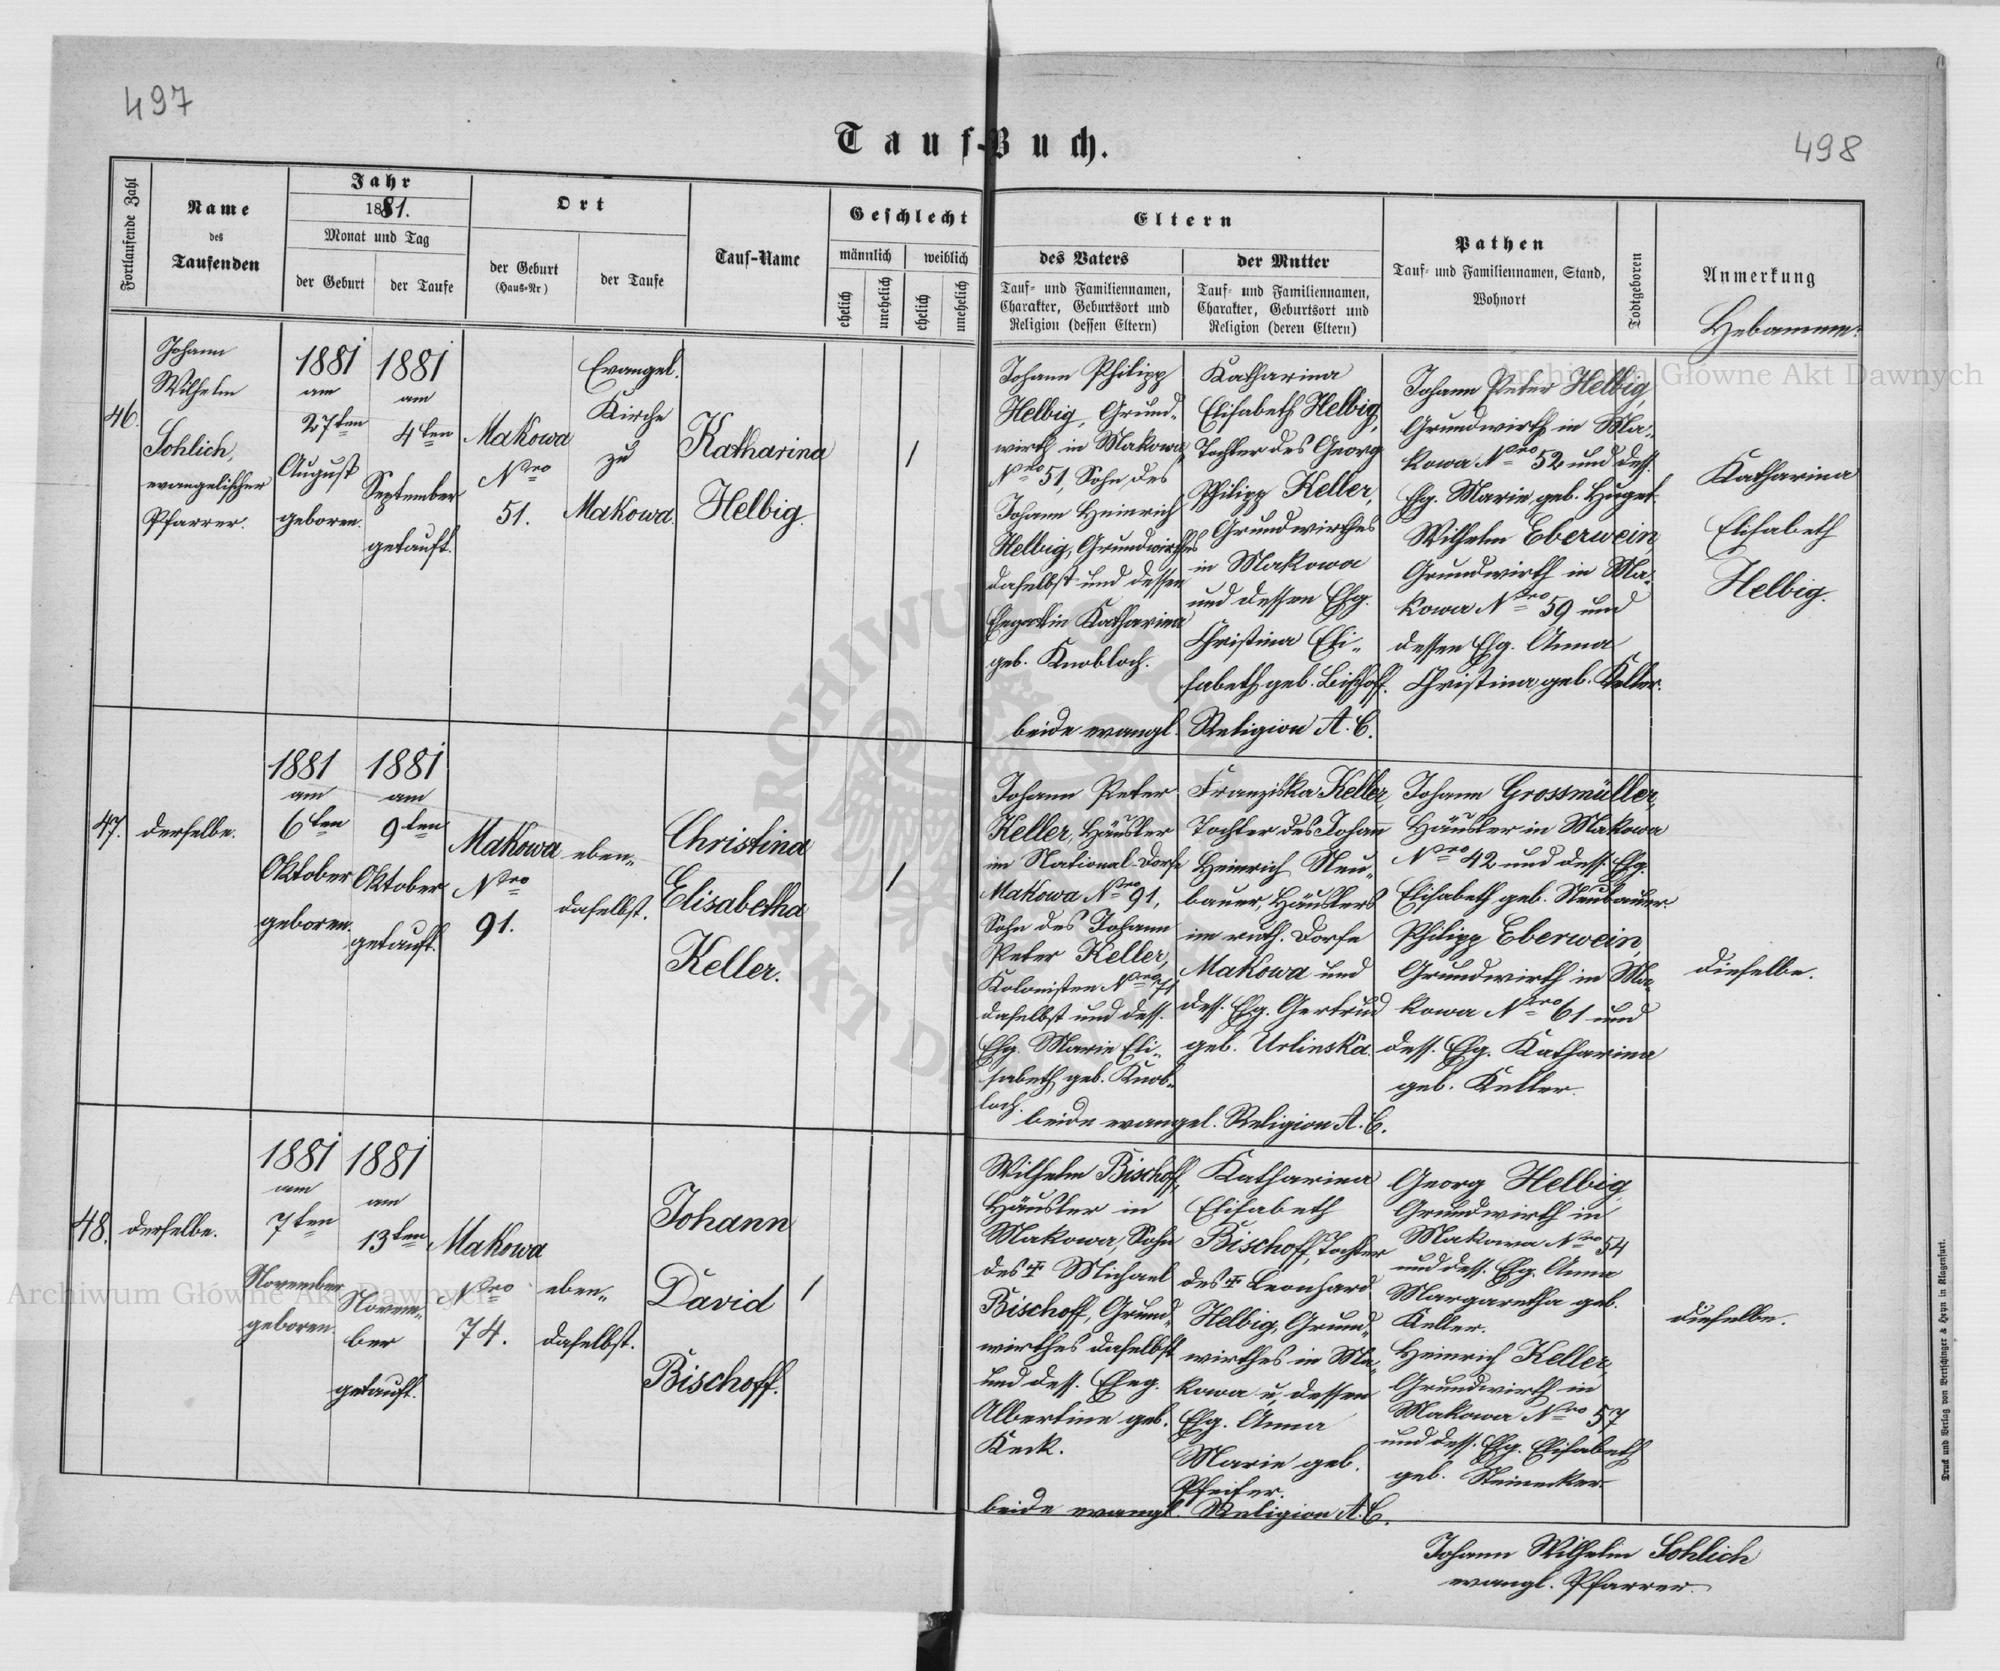 497
498
Tauf-Buch.
Fortlaufende Zahl
Name
des
Taufenden
Jahr
1881.
Monat und Tag
der Geburt
der Taufe
Ort
der Geburt
(Haus-Nr)
der Taufe
Tauf-Name
Geschlecht
männlich
weiblich
ehelich
unehelich
ehelich
unehelich
Eltern
des Vaters
Tauf- und Familiennamen,
Charakter, Geburtsort und
Religion (dessen Eltern)
der Mutter
Tauf- und Familiennamen,
Charakter, Geburtsort und
Religion (deren Eltern)
Pathen
Tauf- und Familiennamen, Stand,
Wohnort
Todtgeboren
Anmerkung
Hebamme:
46.
Johann
Wilhelm
Sohlich,
evangelischer
Pfarrer.
1881
am
27ten
August
geboren.
1881
am
4ten
September
getauft.
Makowa
Nro
51.
Evangel.
Kirche
zu
Makowa.
Katharina
Helbig.
/
Johann Philipp
Helbig, Grund-
wirth in Makowa
Nro 51, Sohn des
Johann Heinrich
Helbig, Grundwirthes
daselbst und dessen
Ehegattin Katharina
geb. Knobloch.
Katharina
Elisabeth Helbig,
Tochter des Georg
Philipp Keller,
Grundwirthes
in Makowa
und dessen Ehg.
Christina Eli-
sabeth geb. Bischoff.
beide evangl. Religion A. C.
Johann Peter Helbig,
Grundwirth in Ma-
kowa Nro 52 und dess.
Ehg. Marie geb. Huget.
Wilhelm Eberwein,
Grundwirth in Ma-
kowa Nro 59 und
dessen Ehg. Anna
Christina geb. Keller.
Katharina
Elisabeth
Helbig.
47.
derselbe.
1881
am
6ten
Oktober
geboren.
1881
am
9ten
Oktober
getauft.
Makowa
Nro
91.
eben-
daselbst.
Christina
Elisabetha
Keller.
/
Johann Peter
Keller, Häusler
im National-Dorfe
Makowa Nro 91,
Sohn des Johann
Peter Keller,
Kolonisten Nro 71
daselbst und dess.
Ehg. Marie Eli-
sabeth geb. Knob-
loch.
Franziska Keller,
Tochter des Johann
Heinrich Neu-
bauer, Häuslers
im ruth. Dorfe
Makowa und
dess. Ehg. Gertrud
geb. Urlinska.
beide evangel. Religion A. C.
Johann Grossmüller,
Häusler in Makowa
Nro 42 und dess. Ehg.
Elisabeth geb. Neubauer.
Philipp Eberwein,
Grundwirth in Ma-
kowa Nro 61 und
dess. Ehg. Katharina
geb. Keller.
dieselbe.
48.
derselbe.
1881
am
7ten
November
geboren.
1881
am
13ten
Novem-
ber
getauft.
Makowa
Nro
74.
eben-
daselbst.
Johann
David
Bischoff.
/
Wilhelm Bischoff,
Häusler in
Makowa, Sohn
des ✝ Michael
Bischoff, Grund-
wirthes daselbst
und dess. Eheg.
Albertine geb.
Keck.
Katharina
Elisabeth
Bischoff, Tochter
des ✝ Leonhard
Helbig, Grund-
wirthes in Ma-
kowa u. dessen
Ehg. Anna
Marie geb.
Pfeifer.
beide evangl. Religion A. C.
Georg Helbig
Grundwirth in
Makowa Nro 54
und dess. Ehg. Anna
Margaretha geb.
Keller.
Heinrich Keller,
Grundwirth in
Makowa Nro 57
und dess. Ehg. Elisabeth
geb. Steinecker.
dieselbe.
Johann Wilhelm Sohlich
evangl. Pfarrer.
Druck und Verlag von Bertschinger & Heyn in Klagenfurt.
Archiwum Główne Akt Dawnych
Archiwum Główne Akt Dawnych